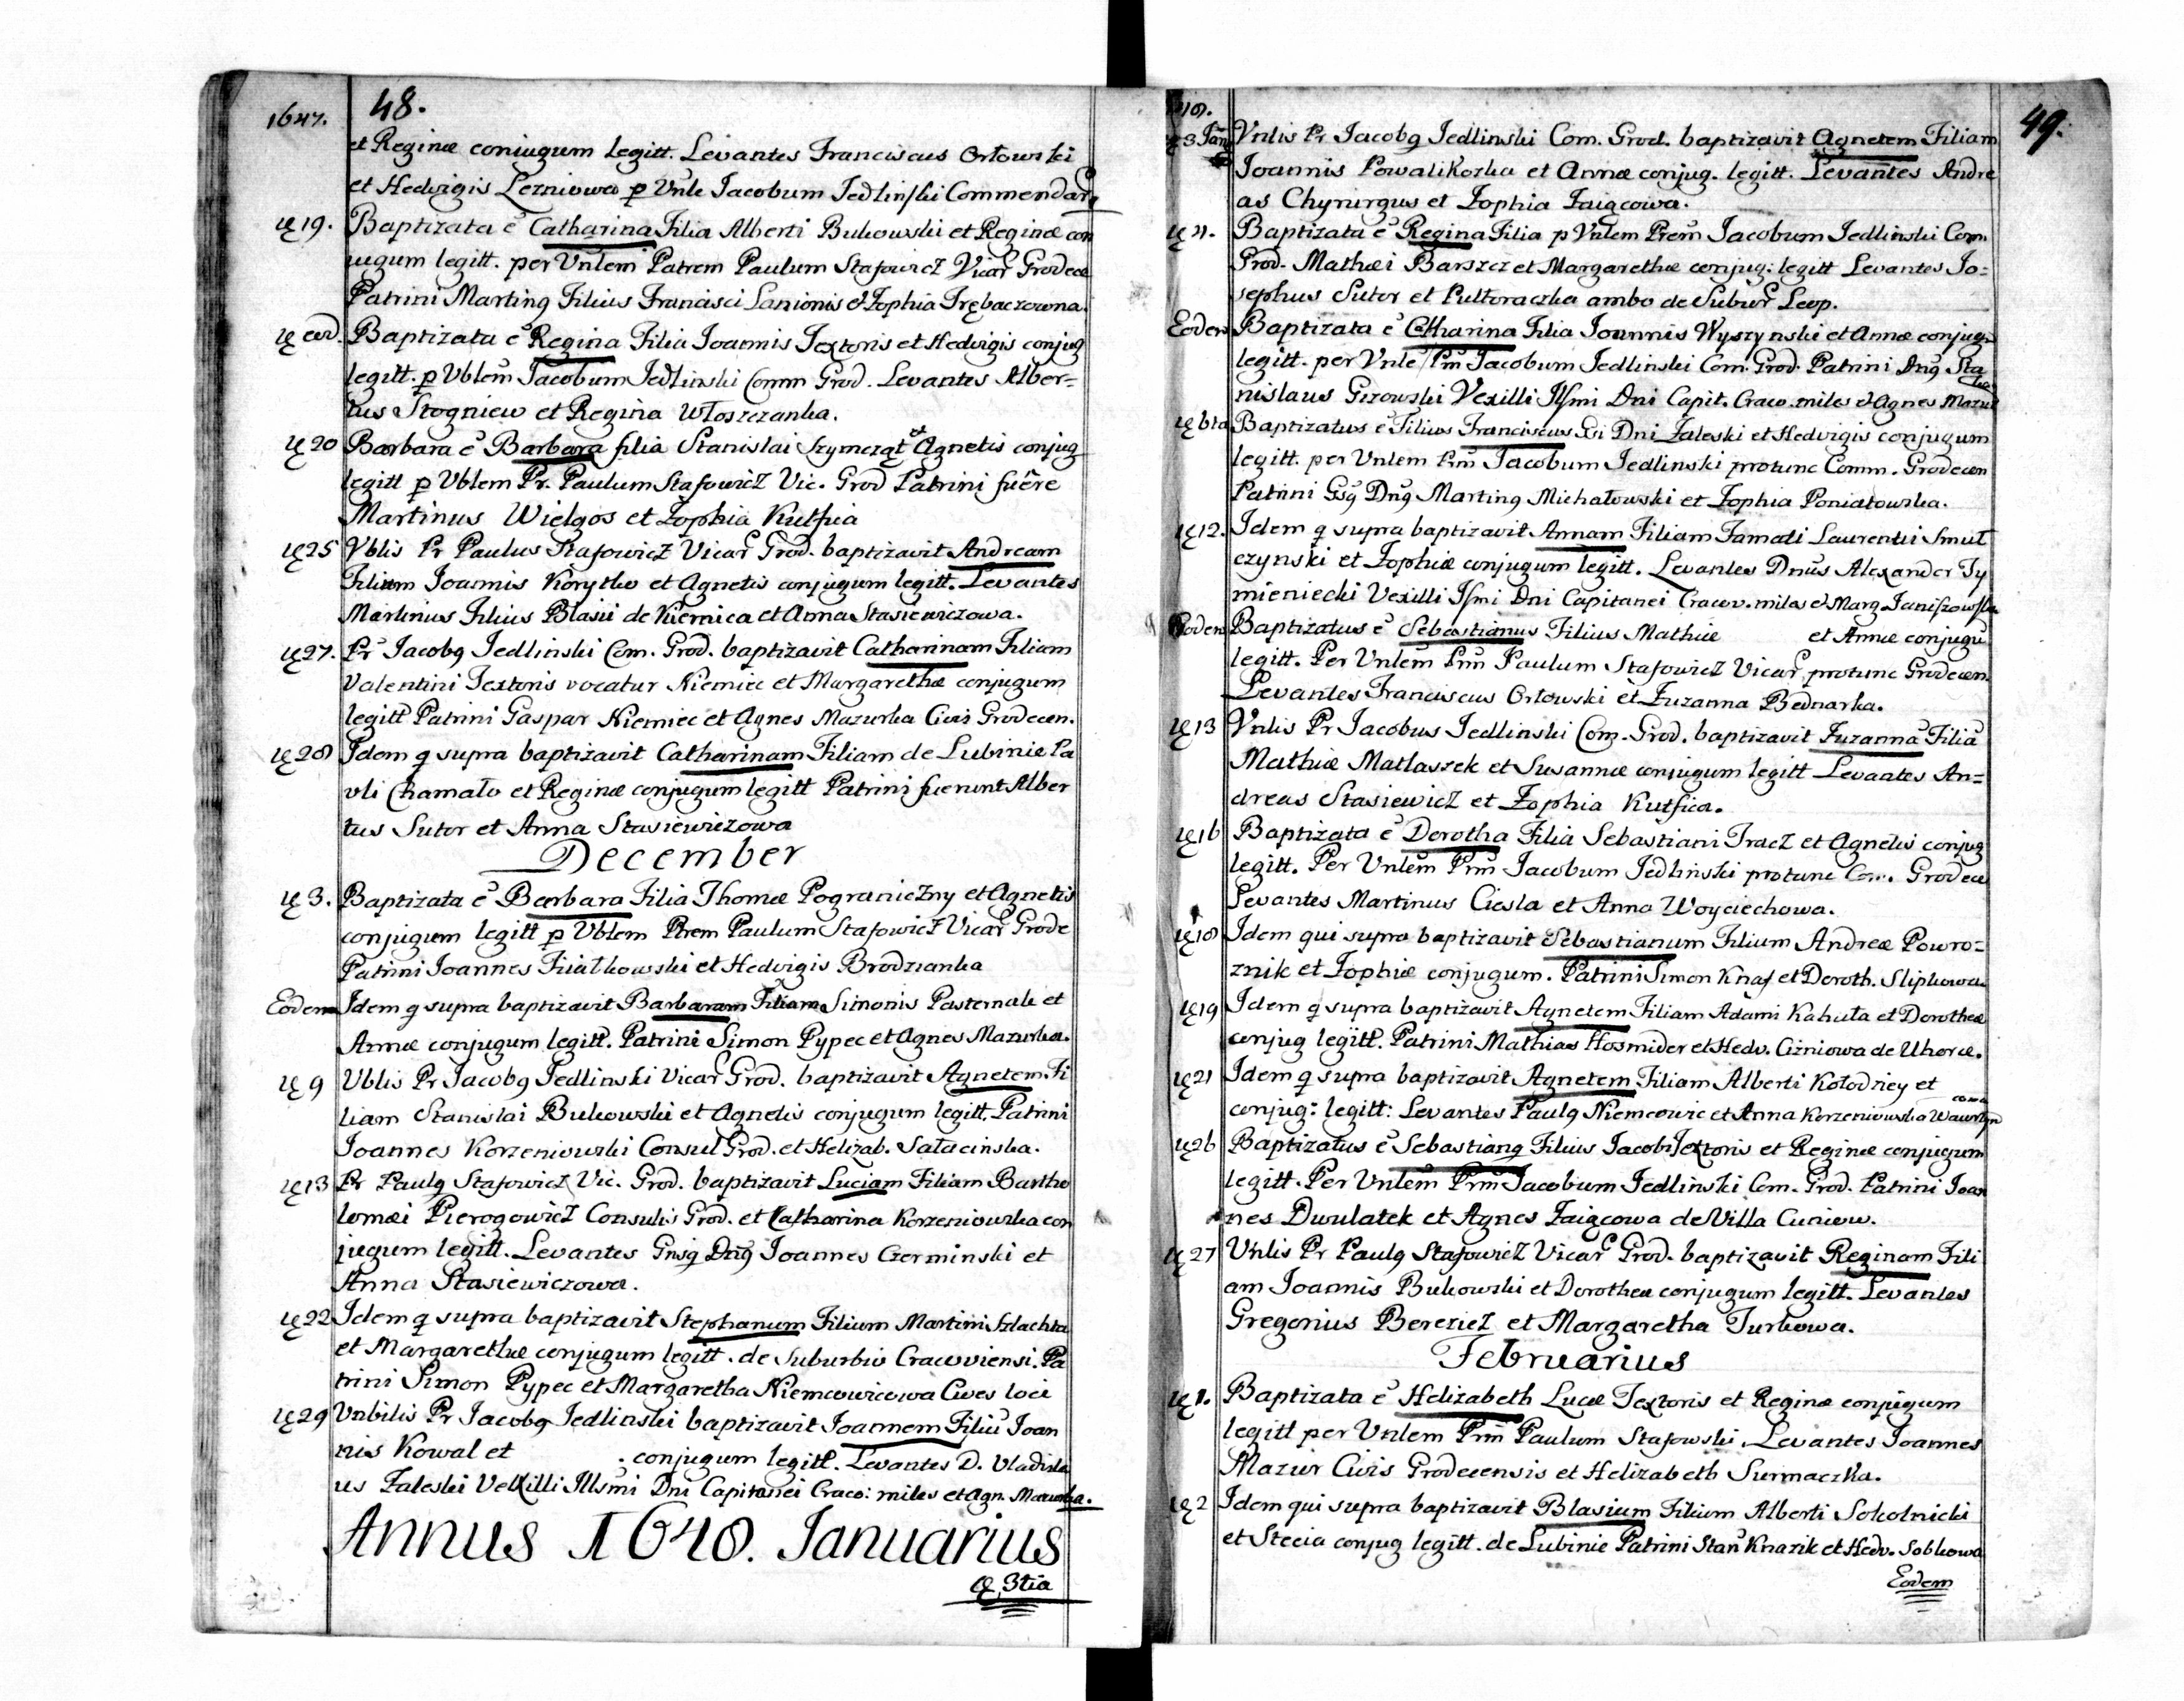 1647. 48.
et Reginæ conjugum legitt. Levantes Franciscus Orłowski
et Hedvigis Lezniowa p Vnle Jacobum Jedlinski Commendar
19. Baptizata ē Catharina Filia Alberti Bukowski et Reginæ con
jugum legitt. per Vnlem Patrem Paulum Stafowicz Vicar Grodece
Patrini Martinꝯ Filius Francisci Lanionis & Zophia Trębaczowna.
eod. Baptizata ē Regina Filia Joannis Textoris et Hedvigis conjug
legitt. p Vblem Jacobum Jedlinski Comm Grod. Levantes Alber=
tus Stogniew et Regina Włoszczanka.
20 Barbara ē Barbara filia Stanislai Szymcząt et Agnetis conjug
legitt p Vblem Pr. Paulum Stafowicz Vic. Grod Patrini fuêre
Martinus Wielgos et Zophia Kutfia
25 Vblis Pr Paulus Stafowicz Vicar Grod. baptizavit Andream
Filium Joannis Korytko et Agnetis conjugum legitt. Levantes
Martinus Filius Blasii de Kiernica et Anna Stasiewiczowa.
27. Pr Jacobꝯ Jedlinski Com. Grod. baptizavit Catharinam Filiam
Valentini Textoris vocatur Niemiec et Margarethæ conjugum
legitt Patrini Gaspar Niemiec et Agnes Mazurka Civis Grodecen.
28 Idem q supra baptizavit Catharinam Filiam de Lubinie Pa
uli Chamało et Reginæ conjugum legitt Patrini fuerunt Alber
tus Sutor et Anna Stasiewiczowa
December
3. Baptizata ē Barbara Filia Thomæ Pograniczny et Agnetis
conjugum legitt p Vblem Prem Paulum Stafowicz Vicar Grode
Patrini Joannes Fiiałkowski et Hedvigis Brodzianka
Eodem Idem q supra baptizavit Barbaram Filiam Simonis Pasternak et
Annæ conjugum legitt. Patrini Simon Pypec et Agnes Mazurka.
9 Vblis Pr Jacobꝯ Jedlinski Vicar Grod. baptizavit Agnetem Fi
liam Stanislai Bukowski et Agnetis conjugum legitt. Patrini
Joannes Korzeniowski Consul Grod. et Helizab. Sałacinska.
13 Pr Paulꝯ Stafowicz Vic. Grod. baptizavit Luciam Filiam Bartho
lomæi Pierogowicz Consulis Grod. et Catharina Korzeniowska con
jugum legitt. Levantes Gnsꝯ Dnꝯ Joannes Czerminski et
Anna Stasiewiczowa.
22 Idem q supra baptizavit Stephanum Filium Martini Szlachta
et Margarethæ conjugum legitt. de Suburbio Cracoviensi. Pa
trini Simon Pypec et Margaretha Niemcowicowa Cives loci
29 Vnbilis Pr Jacobꝯ Jedlinski baptizavit Joannem Filiū Joan
nis Kowal et . conjugum legitt. Levantes D. Vladisla
us Zaleski Vexilli Illsmi Dni Capitanei Craco: miles et Agn. Mazurka.
Annus 1648. Januarius
3tia
49.
3 Jan Vnlis Pr Jacobꝯ Jedlinski Com. Grod. baptizavit Agnetem Filiam
Joannis Powalikozka et Annæ conjug. legitt. Levantes Andre
as Chyrurgus et Zophia Zaigcowa.
4. Baptizata ē Regina Filia p Vnlem Prem Jacobum Jedlinski Com.
Grod. Mathæi Barszcz et Margarethæ conjug: legitt Levantes Jo=
sephus Sutor et Pułtoraczka ambo de Subur Leop.
Eodem Baptizata ē Catharina Filia Joannis Wyszynski et Annæ conjug.
legitt. per Vnle Prm Jacobum Jedlinski Com. Grod. Patrini Dnꝯ Sta
nislaus Gizowski Vexilli Illsmi Dni Capit. Craco. miles & Agnes Mazur
ka
6ta Baptizatus ē Filius Franciscus Gsi Dni Zaleski et Hedvigis conjugum
legitt. per Vnlem Prm Jacobum Jedlinski protunc Comm. Grodecen
Patrini Gsꝯ Dnꝯ Martinꝯ Michałowski et Zophia Poniatowska.
12. Idem q supra baptizavit Annam Filiam Famati Laurentii Smul
czynski et Zophiæ conjugum legitt. Levantes Dnus Alexander Ty
mieniecki Vexilli Ilsmi Dni Capitanei Cracov. miles & Marg. Janiszowska
Eodem Baptizatus ē Sebastianus Filius Mathiæ et Annæ conjugū
legitt. Per Vnlem Prm Paulum Stafowicz Vicar protunc Grodecen.
Levantes Franciscus Orłowski et Zuzanna Bednarka.
13 Vnlis Pr Jacobus Jedlinski Com. Grod. baptizavit Zuzannā Filiā
Mathiæ Matlaszek et Susannæ conjugum legitt Levantes An=
dreas Stasiewicz et Zophia Kutfica.
16 Baptizata ē Dorotha Filia Sebastiani Tracz et Agnetis conjug
legitt. Per Vnlem Prm Jacobum Jedlinski protunc Com. Grodece
Levantes Martinus Ciesla et Anna Woyciechowa.
18 Idem qui supra baptizavit Sebastianum Filium Andreæ Powro=
znik et Zophiæ conjugum. Patrini Simon Knaf et Doroth. Slipkowa
19 Idem q supra baptizavit Agnetem Filiam Adami Kahuta et Dorotheæ
conjug legitt. Patrini Mathias Hosmider et Hedv. Ciżniowa de Uhorce.
21 Idem q supra baptizavit Agnetem Filiam Alberti Kołodziey et
conjug: legitt: Levantes Paulꝯ Niemcowic et Anna Korzeniowska Wawrzyn
cowa
26 Baptizatus ē Sebastianꝯ Filius Jacobi Textoris et Reginæ conjugum
legitt. Per Vnlem Prm Jacobum Jedlinski Com. Grod. Patrini Joan
nes Dwulatek et Agnes Zaigcowa de Villa Cuniow.
27 Vnlis Pr Paulꝯ Stafowicz Vicar Grod. baptizavit Reginam Fili
am Joannis Bukowski et Dorothea conjugum legitt. Levantes
Gregorius Berezicz et Margaretha Turkowa.
Februarius
1. Baptizata ē Helizabeth Lucæ Textoris et Reginæ conjugum
legitt per Vnlem Prm Paulum Stafowski. Levantes Joannes
Mazur Civis Grodecensis et Helizabeth Surmaczka.
2 Idem qui supra baptizavit Blasium Filium Alberti Sokolnicki
et Stecia conjug legitt. de Lubinie Patrini Stan Knazik et Hedv. Sobkowa
Eodem